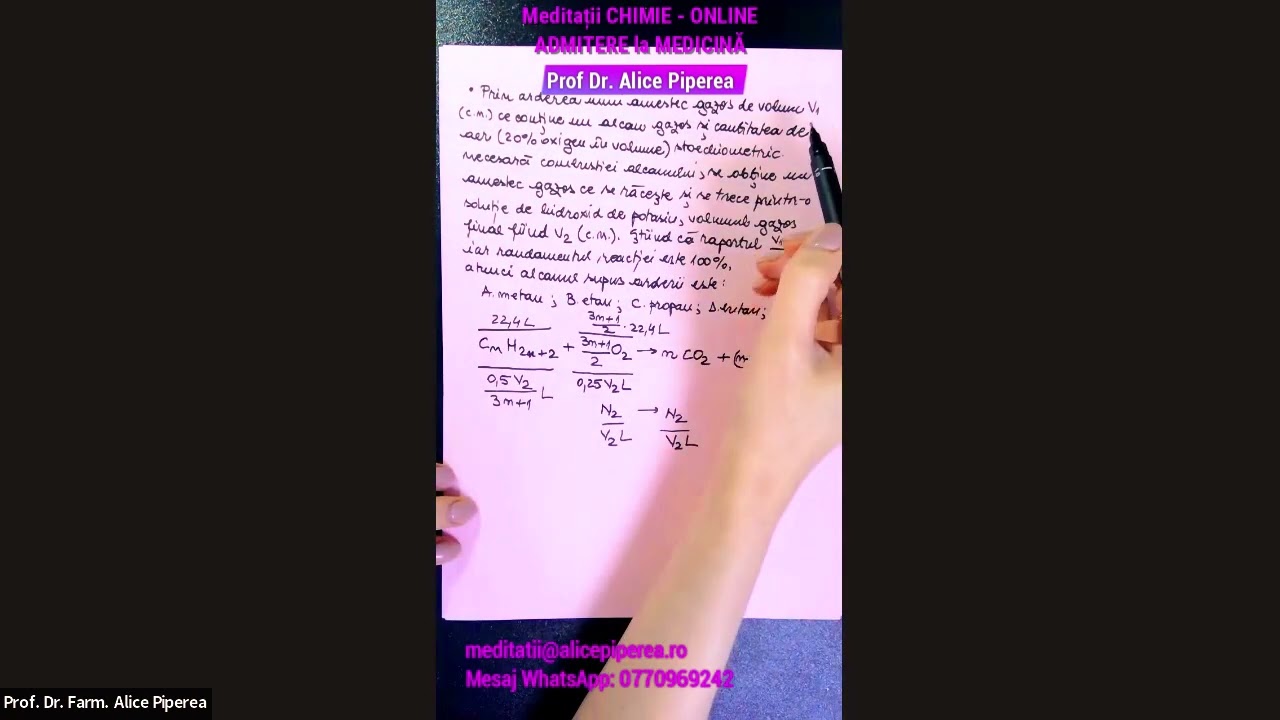 Meditații CHIMIE - ONLINE
ADMITERE la MEDICINĂ
Prof Dr. Alice Piperea
• Prin arderea unui amestec gazos de volum V1
(c.n.) ce conține un alcan gazos și cantitatea de
aer (20% oxigen în volume) stoechiometric
necesară combustiei alcanului, se obține un
amestec gazos ce se răcește și se trece printr-o
soluție de hidroxid de potasiu, volumul gazos
final fiind V2 (c.n.). Știind că raportul V1
iar randamentul reacției este 100%,
atunci alcanul supus arderii este:
A. metan; B. etan; C. propan; D. butan;
22,4 L 3n+1/2 · 22,4 L
CnH2n+2 + 3n+1/2 O2 → n CO2 + (n
0,5V2/3n+1 L 0,25V2 L
N2 → N2
V2 L V2 L
meditatii@alicepiperea.ro
Mesaj WhatsApp: 0770969242
Prof. Dr. Farm. Alice Piperea